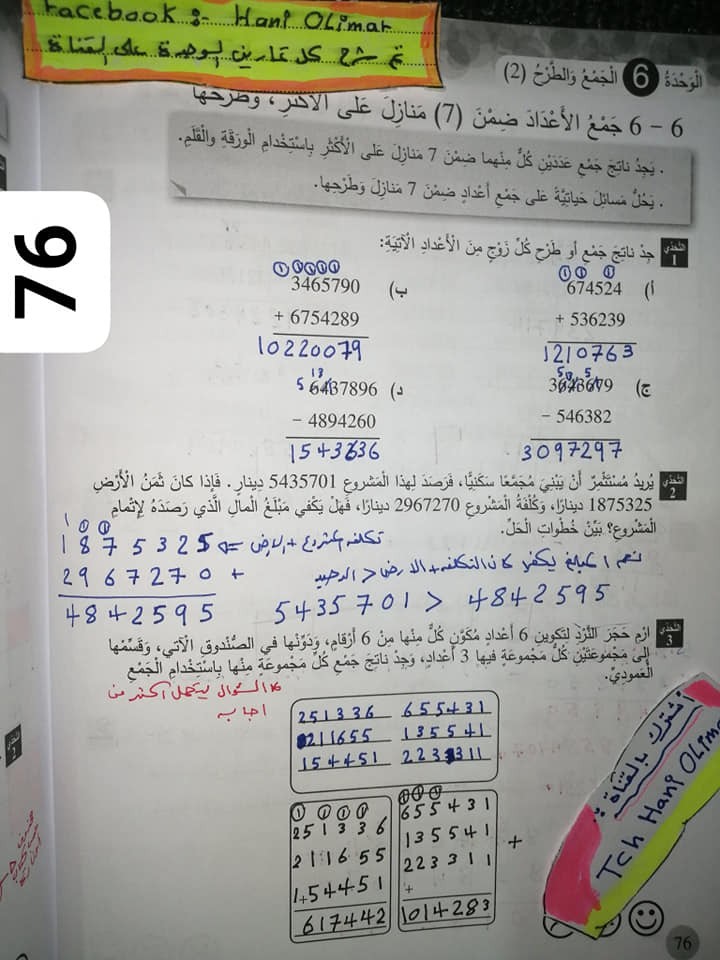 Facebook :- Hani OLimat
تم شرح كل تمارين الوحدة على القناة
الْوَحْدَةُ 6 الْجَمْعُ وَالطَّرْحُ (2)
6 – 6 جَمْعُ الأَعْدادِ ضِمْنَ (7) مَنازِلَ عَلى الأَكْثَرِ، وَطَرْحُها
. يَجِدُ ناتِجَ جَمْعِ عَدَدَيْنِ كُلٌّ مِنْهما ضِمْنَ 7 مَنازِلَ عَلى الْأَكْثَرِ بِاسْتِخْدامِ الوَرَقَةِ وَالْقَلَمِ.
. يَحُلُّ مَسائِلَ حَياتِيَّةً عَلى جَمْعِ أَعْدادٍ ضِمْنَ 7 مَنازِلَ وَطَرْحِها.
76
التَّحَدّي 1
جِدْ ناتِجَ جَمْعِ أَو طَرْحِ كُلِّ زَوْجٍ مِنَ الْأَعْدادِ الْآتِيَةِ:
1 1 1
أ) 674524
+ 536239
1210763
1 1 1 1 1
ب) 3465790
+ 6754289
10220079
ج) 3643679
- 546382
3097297
5 13
د) 6437896
- 4894260
1543636
التَّحَدّي 2
يُريدُ مُسْتَثْمِرٌ أَنْ يَبْنِيَ مُجَمَّعًا سَكَنِيًّا، فَرَصَدَ لِهذا الْمَشروعِ 5435701 دِينارٍ. فَإِذا كانَ ثَمَنُ الْأَرْضِ
1875325 دينارًا، وَكُلْفَةُ الْمَشْروعِ 2967270 دينارًا، فَهَلْ يَكْفي مَبْلَغُ الْمالِ الَّذي رَصَدَهُ لِإِتْمامِ
الْمَشْروعِ؟ بَيِّنْ خُطُواتِ الْحَلِّ.
تكلفه المشروع + الارض =>
1 1 1
1875325
2967270 +
4842595
نعم المبلغ يكفي كان التكلفه + الارض < الرصيد
5435701 > 4842595
التَّحَدّي 3
ارْمِ حَجَرَ النَّرْدِ لِتَكوينِ 6 أَعْدادٍ مُكَوَّنٍ كُلٌّ مِنْها مِنْ 6 أَرْقامٍ، وَدَوِّنْها في الصُّنْدوقِ الْآتي، وَقَسِّمْها
إِلى مَجْموعَتَيْنِ كُلُّ مَجْموعَةٍ فيها 3 أَعْدادٍ، وَجِدْ ناتِجَ جَمْعِ كُلِّ مَجْموعَةٍ مِنْها بِاسْتِخْدامِ الْجَمْعِ
الْعَمودِيِّ.
السؤال يتحمل اكثر من
اجابه
251336 655431
211655 135541
154451 223311
1 1 1 1
251336
211655
154451
+
617442
1 1 1
655431
135541
223311
+
1014283
+
اشترك بالقناة :
Tch Hani OLimat
76